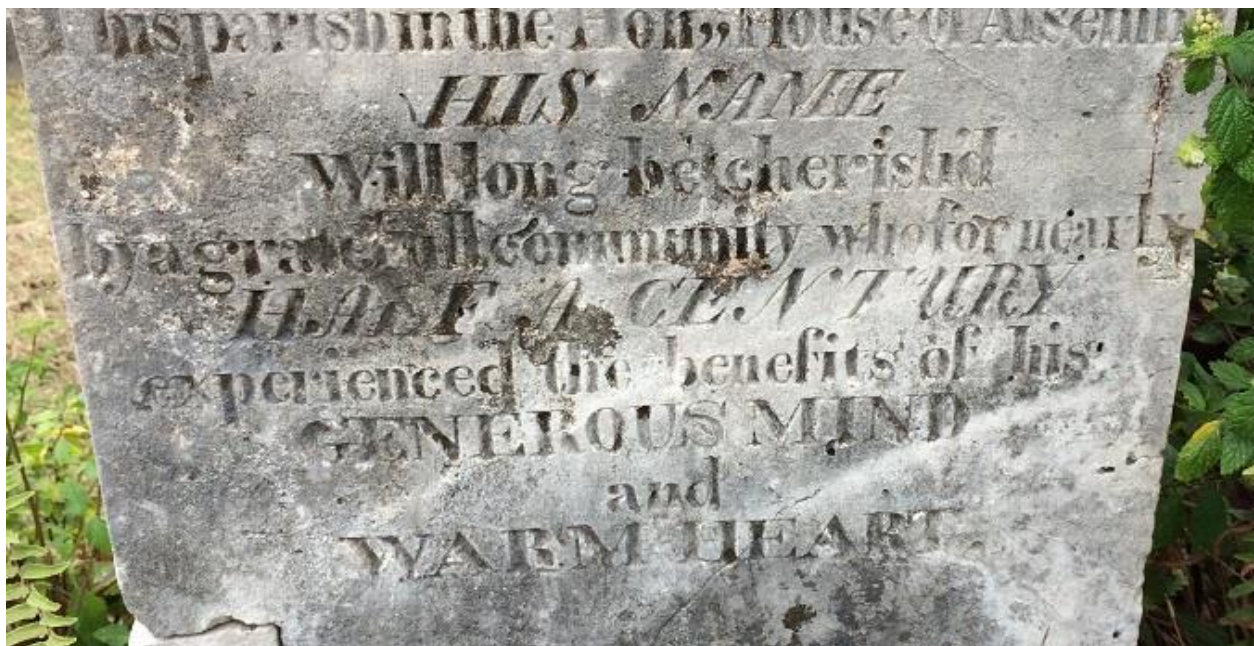 this parish in the Hon,, House of Assemb
HIS NAME
Will long be cherish'd
by a gratefull community who for nearly
HALF A CENTURY
experienced the benefits of his
GENEROUS MIND
and
WARM HEART.